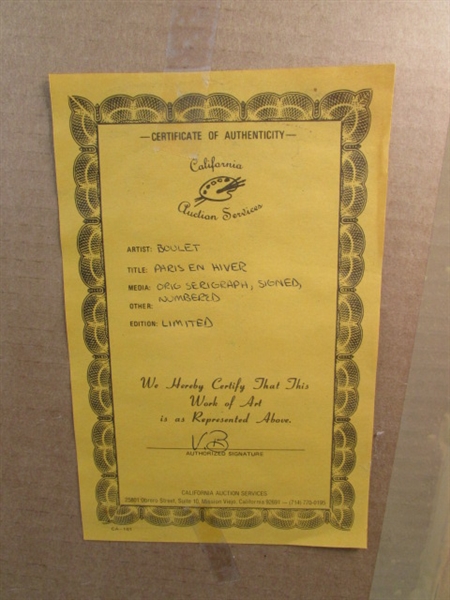 —CERTIFICATE OF AUTHENTICITY—
California
Auction Services
ARTIST: BOULET
TITLE: PARIS EN HIVER
MEDIA: ORIG SERIGRAPH, SIGNED,
OTHER: NUMBERED
EDITION: LIMITED
We Hereby Certify That This
Work of Art
is as Represented Above.
VB
AUTHORIZED SIGNATURE
CALIFORNIA AUCTION SERVICES
Street, Suite 10, Mission Viejo, California